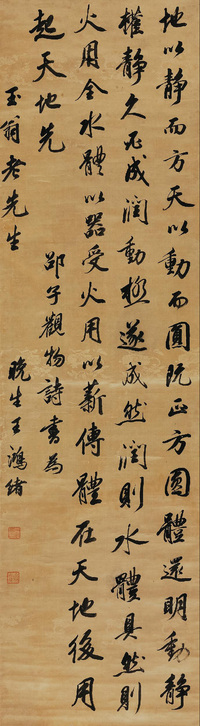 地以静而方天以動而圓既正方圓體還明動静
權静久必成潤動極遂成然潤則水體具然則
火用全水體以器受火用以薪傳體在天地後用
起天地先
邵子觀物詩書為
玉翁老先生
晚生王鴻緒